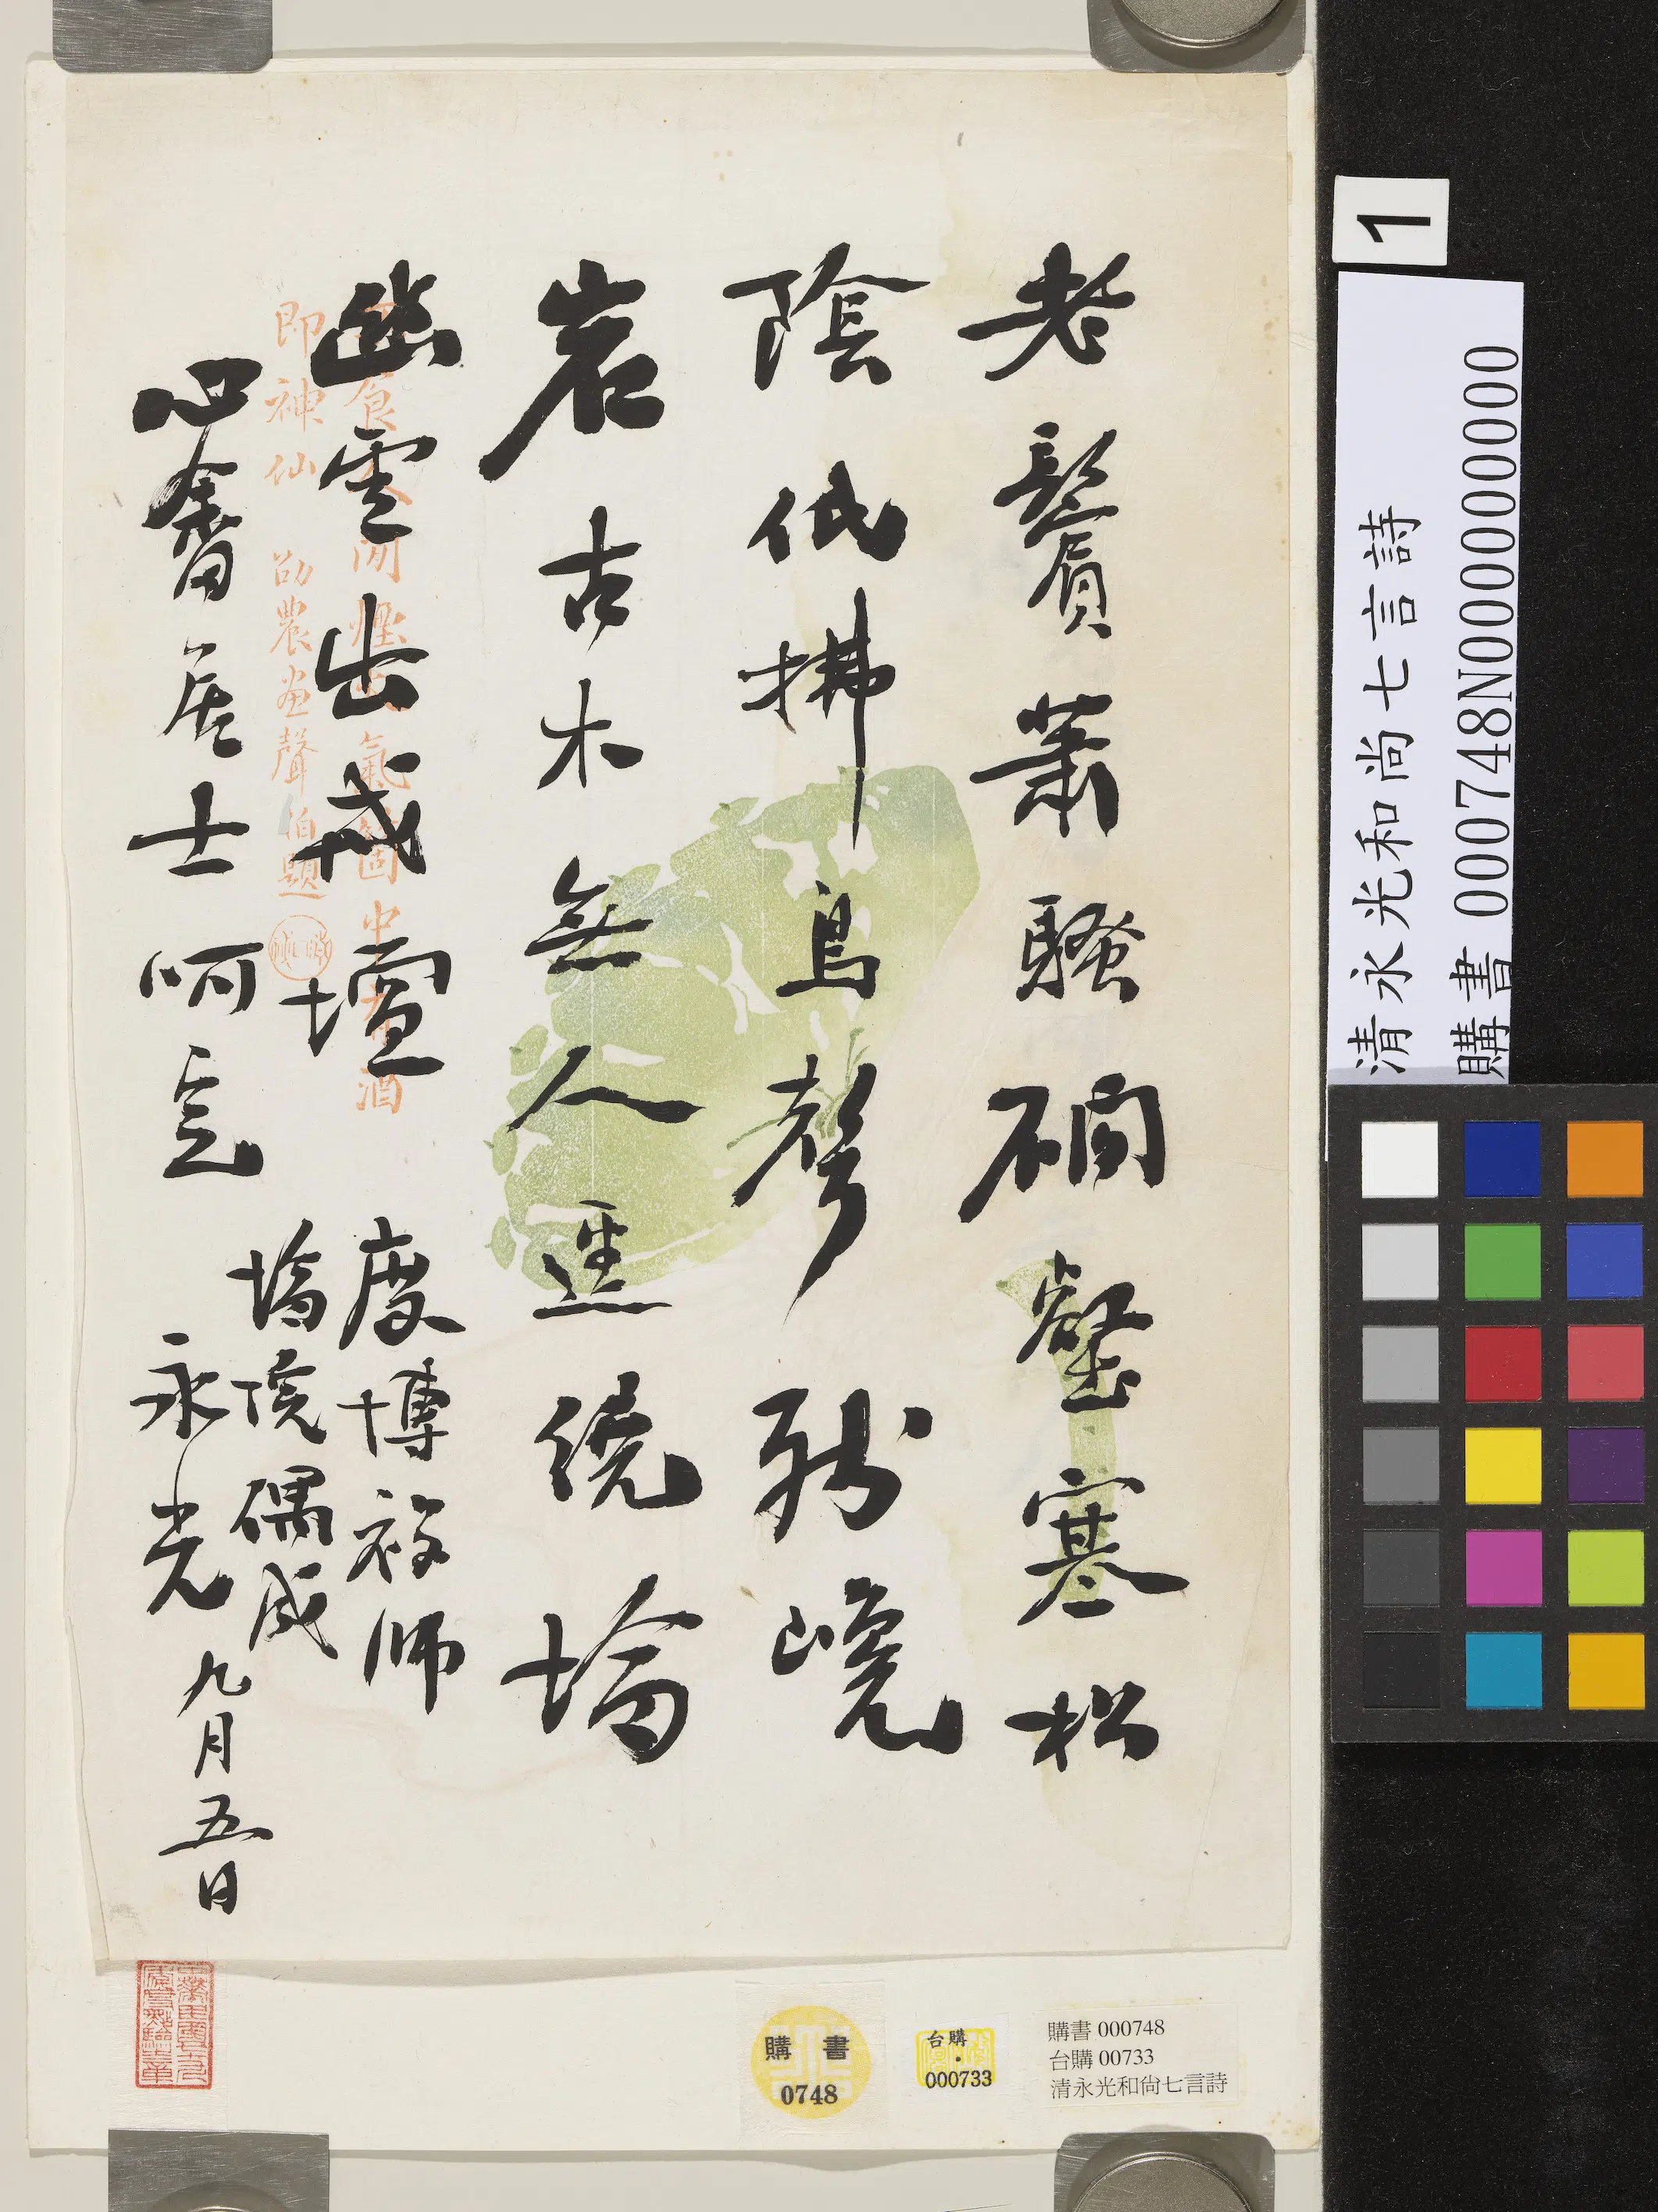 老鬢蕭騷磵壑寒松
陰低拂鳥聲殘嶢
岩古木無人逕繞塔
幽雲出戒壇
度博師
塔院偶成
心畬居士呵正
永光
九月五日
即神仙 劭農画聲伯題
1
清永光和尚七言詩
購書 000748N000000000
購書
0748
台購
000733
購書 000748
台購 00733
清永光和尚七言詩